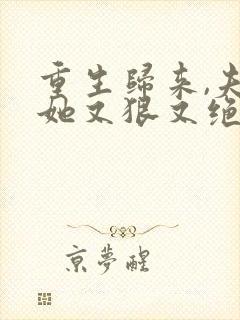 重生歸来,夫
她又狠又绝
京夢醒